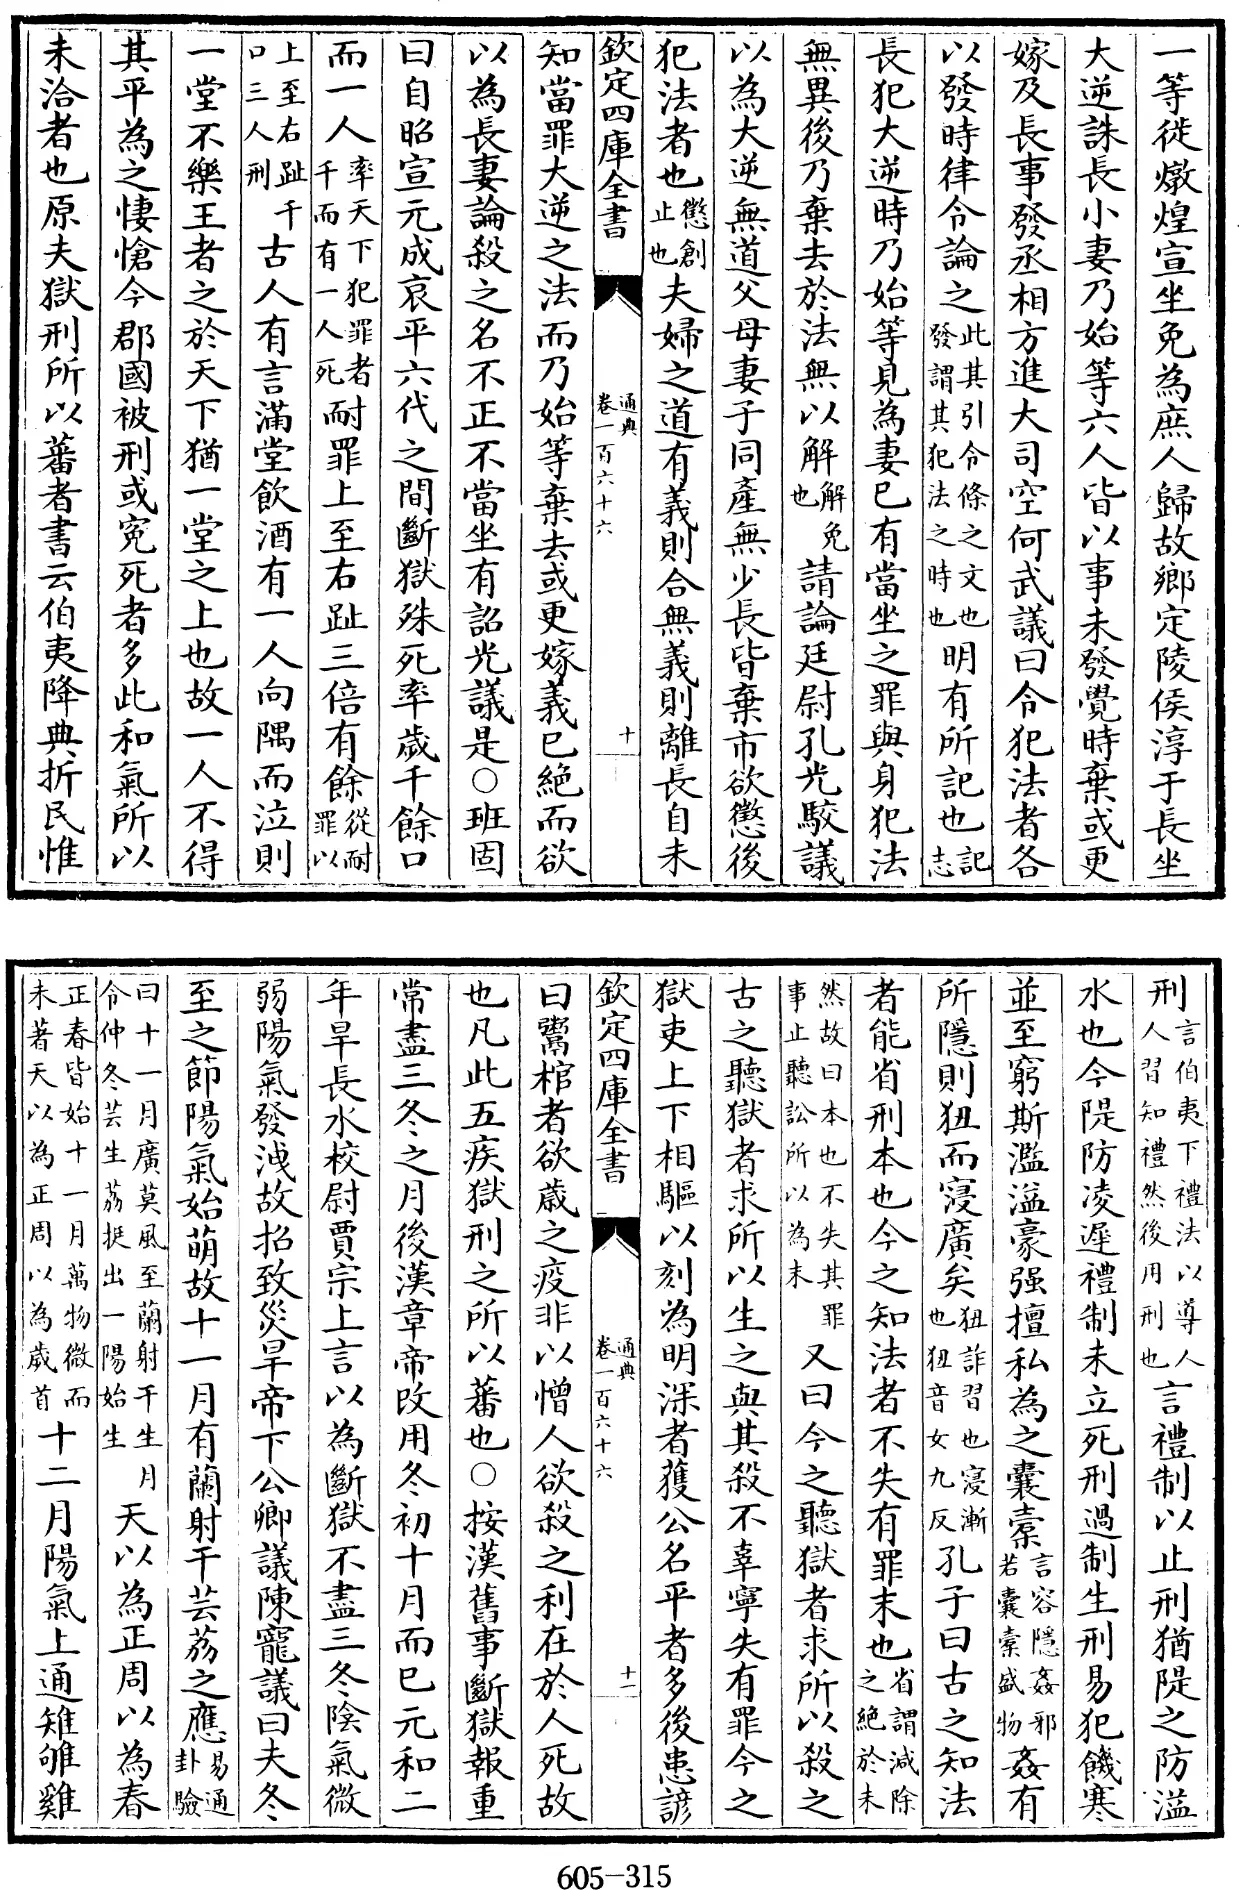 一等徙燉煌宣坐免為庶人歸故鄉定陵侯淳于長坐
大逆誅長小妻乃始等六人皆以事未發覺時棄或更
嫁及長事發丞相方進大司空何武議曰令犯法者各
以發時律令論之此其引令條之文也發謂其犯法之時也明有所記也記志
長犯大逆時乃始等見為妻已有當坐之罪與身犯法
無異後乃棄去於法無以解解免也請論廷尉孔光駮議
以為大逆無道父母妻子同產無少長皆棄市欲懲後
犯法者也懲創止也夫婦之道有義則合無義則離長自未
欽定四庫全書 通典 卷一百六十六 十
知當罪大逆之法而乃始等棄去或更嫁義已絕而欲
以為長妻論殺之名不正不當坐有詔光議是○班固
曰自昭宣元成哀平六代之間斷獄殊死率歲千餘口
而一人率天下犯罪者千而有一人死耐罪上至右趾三倍有餘從耐罪以
上至右趾千口三人刑古人有言滿堂飲酒有一人向隅而泣則
一堂不樂王者之於天下猶一堂之上也故一人不得
其平為之悽愴今郡國被刑或寃死者多此和氣所以
未洽者也原夫獄刑所以蕃者書云伯夷降典折民惟
刑言伯夷下禮法以導人人習知禮然後用刑也言禮制以止刑猶隄之防溢
水也今隄防凌遲禮制未立死刑過制生刑易犯饑寒
並至窮斯濫溢豪强擅私為之囊橐言容隱姦邪若囊橐盛物姦有
所隱則狃而寖廣矣狃詐習也寖漸也狃音女九反孔子曰古之知法
者能省刑本也今之知法者不失有罪末也省謂減除之絕於未
然故曰本也不失其罪事止聽訟所以為末又曰今之聽獄者求所以殺之
古之聽獄者求所以生之與其殺不辜寧失有罪今之
獄吏上下相驅以刻為明深者獲公名平者多後患諺
欽定四庫全書 通典 卷一百六十六 十一
曰鬻棺者欲歲之疫非以憎人欲殺之利在於人死故
也凡此五疾獄刑之所以蕃也○按漢舊事斷獄報重
常盡三冬之月後漢章帝改用冬初十月而已元和二
年旱長水校尉賈宗上言以為斷獄不盡三冬陰氣微
弱陽氣發洩故招致災旱帝下公卿議陳寵議曰夫冬
至之節陽氣始萌故十一月有蘭射干芸荔之應易通卦驗
曰十一月廣莫風至蘭射干生月令仲冬芸生荔挺出一陽始生天以為正周以為春
正春皆始十一月萬物微而未著天以為正周以為歲首十二月陽氣上通雉雊雞
605-315